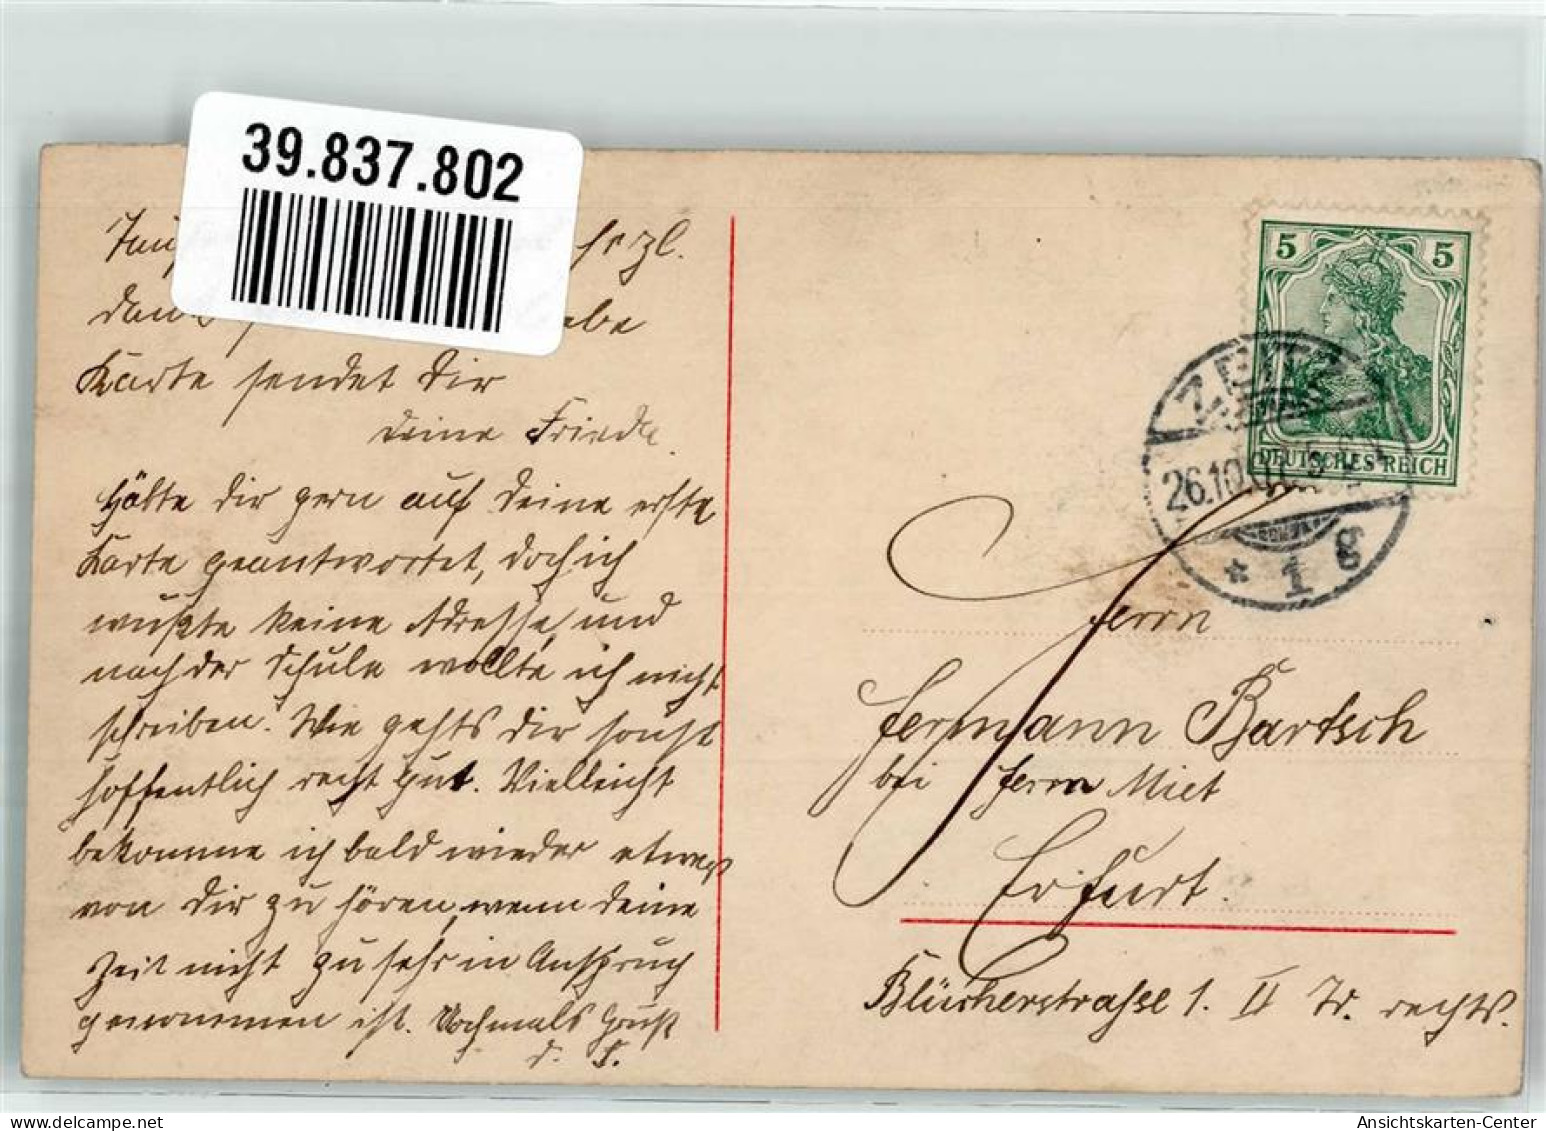 39.837.802
herzl.
Karte sendet Dir
Deine Friedel.
Hätte Dir gern auf Deine erste
Karte geantwortet, doch ich
wußte keine Adresse, und
nach der Schule wollte ich nicht
schreiben. Wie gehts Dir sonst
hoffentlich recht gut. Vielleicht
bekomme ich bald wieder etwas
von Dir zu hören, wenn Deine
Zeit nicht zu sehr in Anspruch
genommen ist. Nochmals Gruß
D. F.
5 5
DEUTSCHES REICH
ZEITZ
26.10.
* 1 g
Herrn
Hermann Bartsch
bei Herrn Miet
Erfurt.
Blücherstrasse 1. II Tr. rechts.
Ansichtskarten-Center